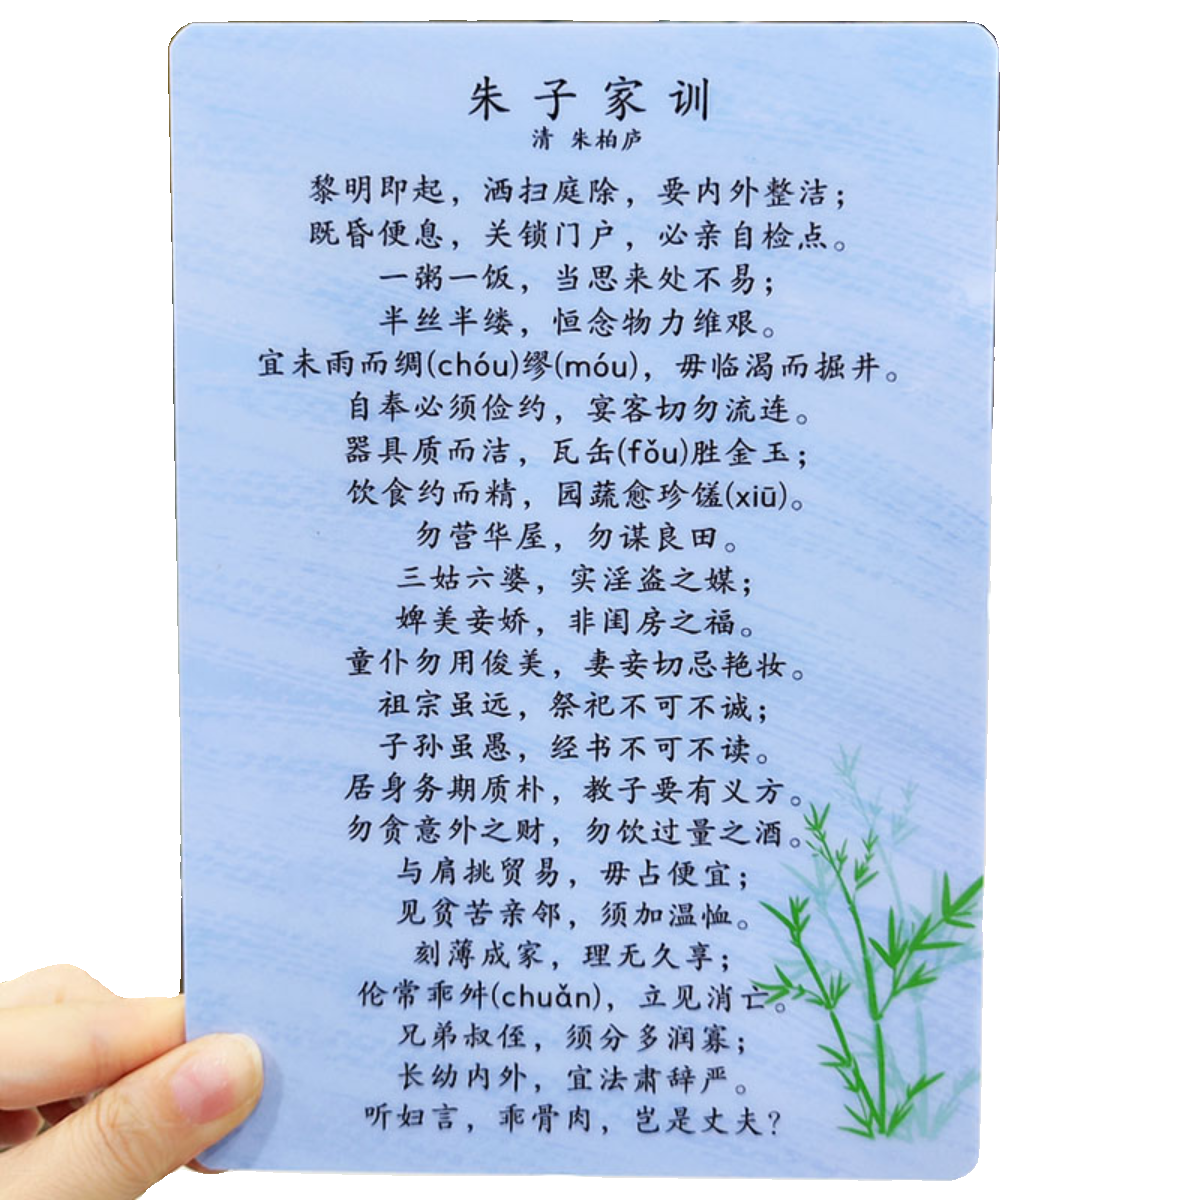 朱子家训
清 朱柏庐
黎明即起，洒扫庭除，要内外整洁；
既昏便息，关锁门户，必亲自检点。
一粥一饭，当思来处不易；
半丝半缕，恒念物力维艰。
宜未雨而绸(chóu)缪(móu)，毋临渴而掘井。
自奉必须俭约，宴客切勿流连。
器具质而洁，瓦缶(fǒu)胜金玉；
饮食约而精，园蔬愈珍馐(xiū)。
勿营华屋，勿谋良田。
三姑六婆，实淫盗之媒；
婢美妾娇，非闺房之福。
童仆勿用俊美，妻妾切忌艳妆。
祖宗虽远，祭祀不可不诚；
子孙虽愚，经书不可不读。
居身务期质朴，教子要有义方。
勿贪意外之财，勿饮过量之酒。
与肩挑贸易，毋占便宜；
见贫苦亲邻，须加温恤。
刻薄成家，理无久享；
伦常乖舛(chuǎn)，立见消亡。
兄弟叔侄，须分多润寡；
长幼内外，宜法肃辞严。
听妇言，乖骨肉，岂是丈夫？